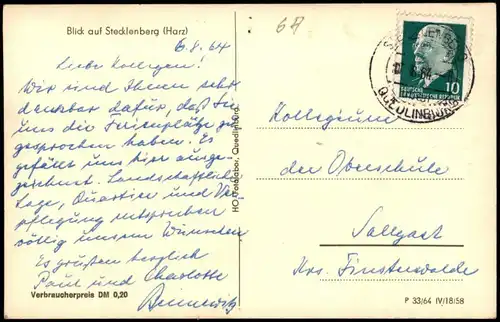 Blick auf Stecklenberg (Harz)
68
6.8.64
Liebe Kollegen!
Wir sind Ihnen sehr
dankbar dafür, daß Sie
uns die Ferienplätze zu
gesprochen haben. Es
gefällt uns hier ausge
zeichnet. Landschaftliche
Lage, Quartier und Ver
pflegung entsprechen
völlig unseren Wünschen
Es grüßen herzlich
Paul und Charlotte
Verbraucherpreis DM 0,20
HO Fotolabor, Quedlinburg
10
DEUTSCHE
DEMOKRATISCHE REPUBLIK
64
QUEDLINBURG
Kollegium
der Oberschule
Sallgast
Krs. Finsterwalde
P 33/64 IV/18/58